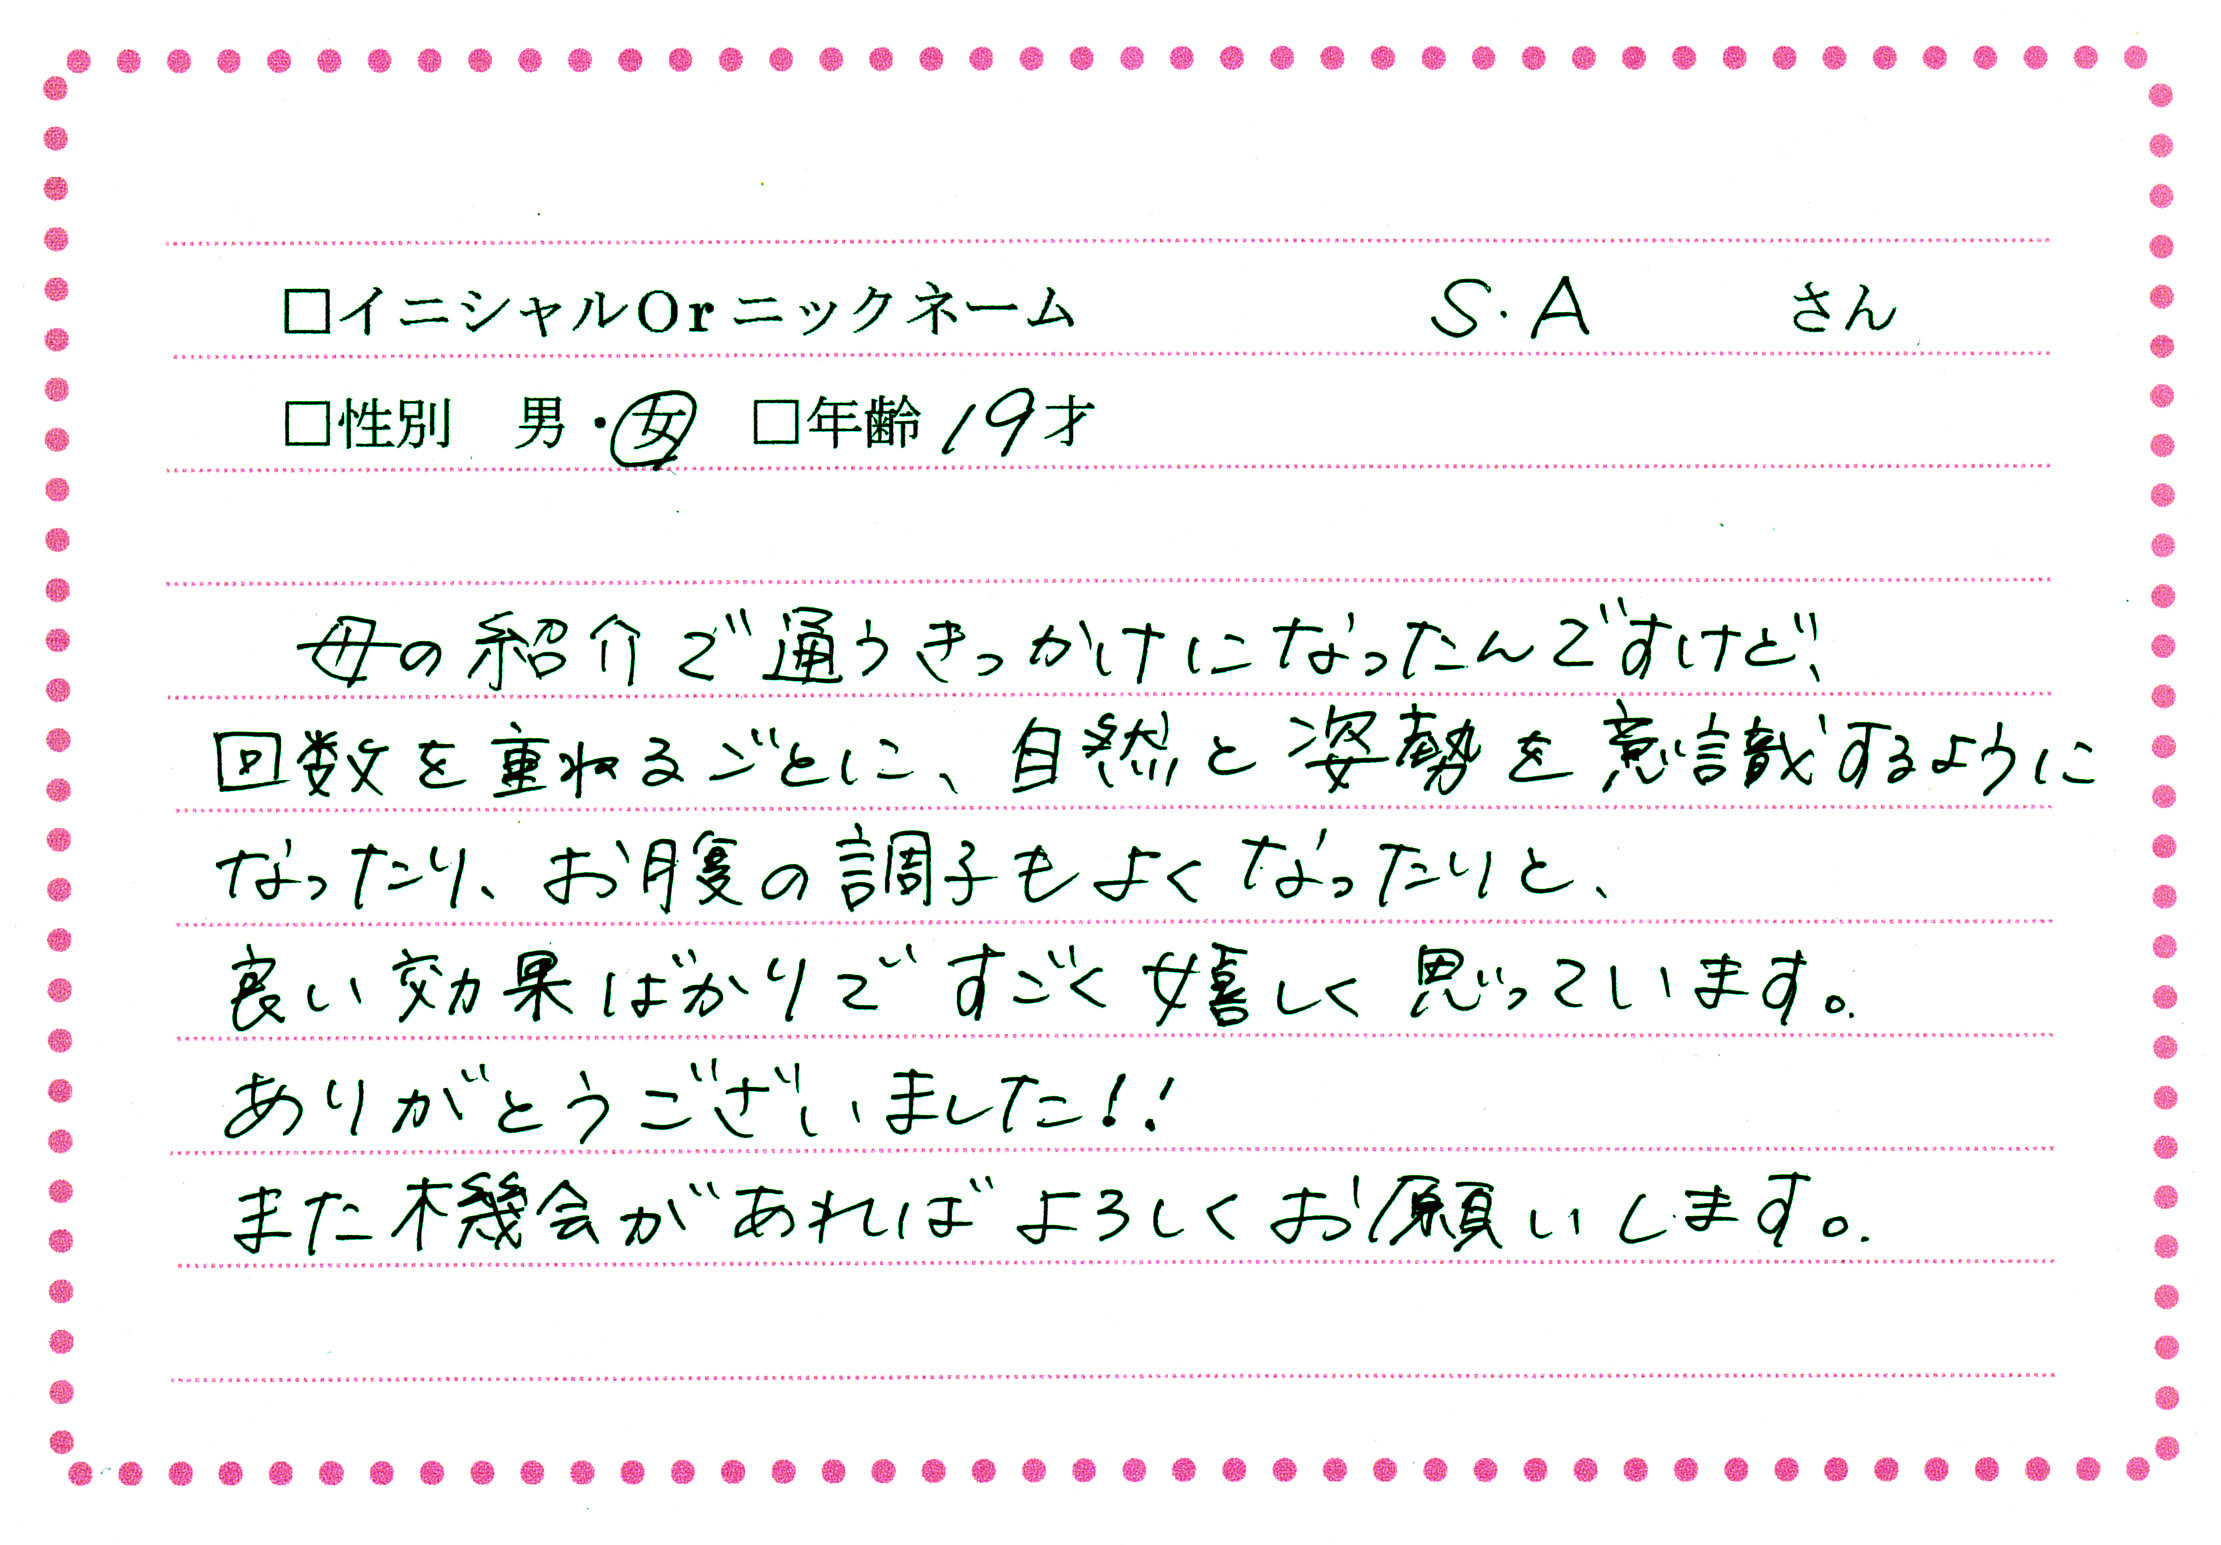 □イニシャルOrニックネーム S・A さん
□性別 男・女 □年齢 19才
母の紹介で通うきっかけになったんですけど、
回数を重ねるごとに、自然と姿勢を意識するように
なったり、お腹の調子もよくなったりと、
良い効果ばかりですごく嬉しく思っています。
ありがとうございました!!
また機会があればよろしくお願いします。